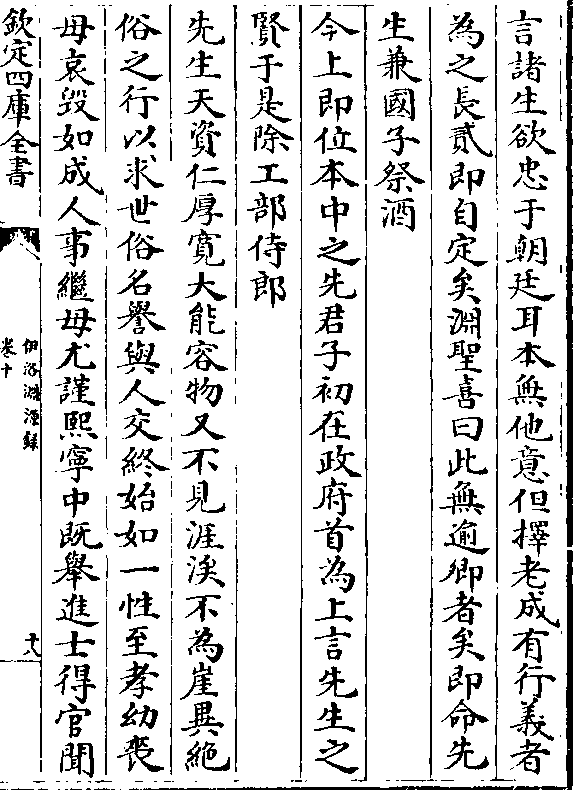 言諸生欲忠于朝廷耳本無他意但擇老成有行義者
為之長貳即自定矣淵聖喜曰此無逾卿者矣即命先
生兼國子祭酒
今上即位本中之先君子初在政府首為上言先生之
賢于是除工部侍郎
先生天資仁厚寬大能容物又不見涯涘不為崖異絶
俗之行以求世俗名譽與人交終始如一性至孝幼喪
母哀毀如成人事繼母尤謹熙寧中既舉進士得官聞
欽定四庫全書
伊洛淵源録
卷十
十八